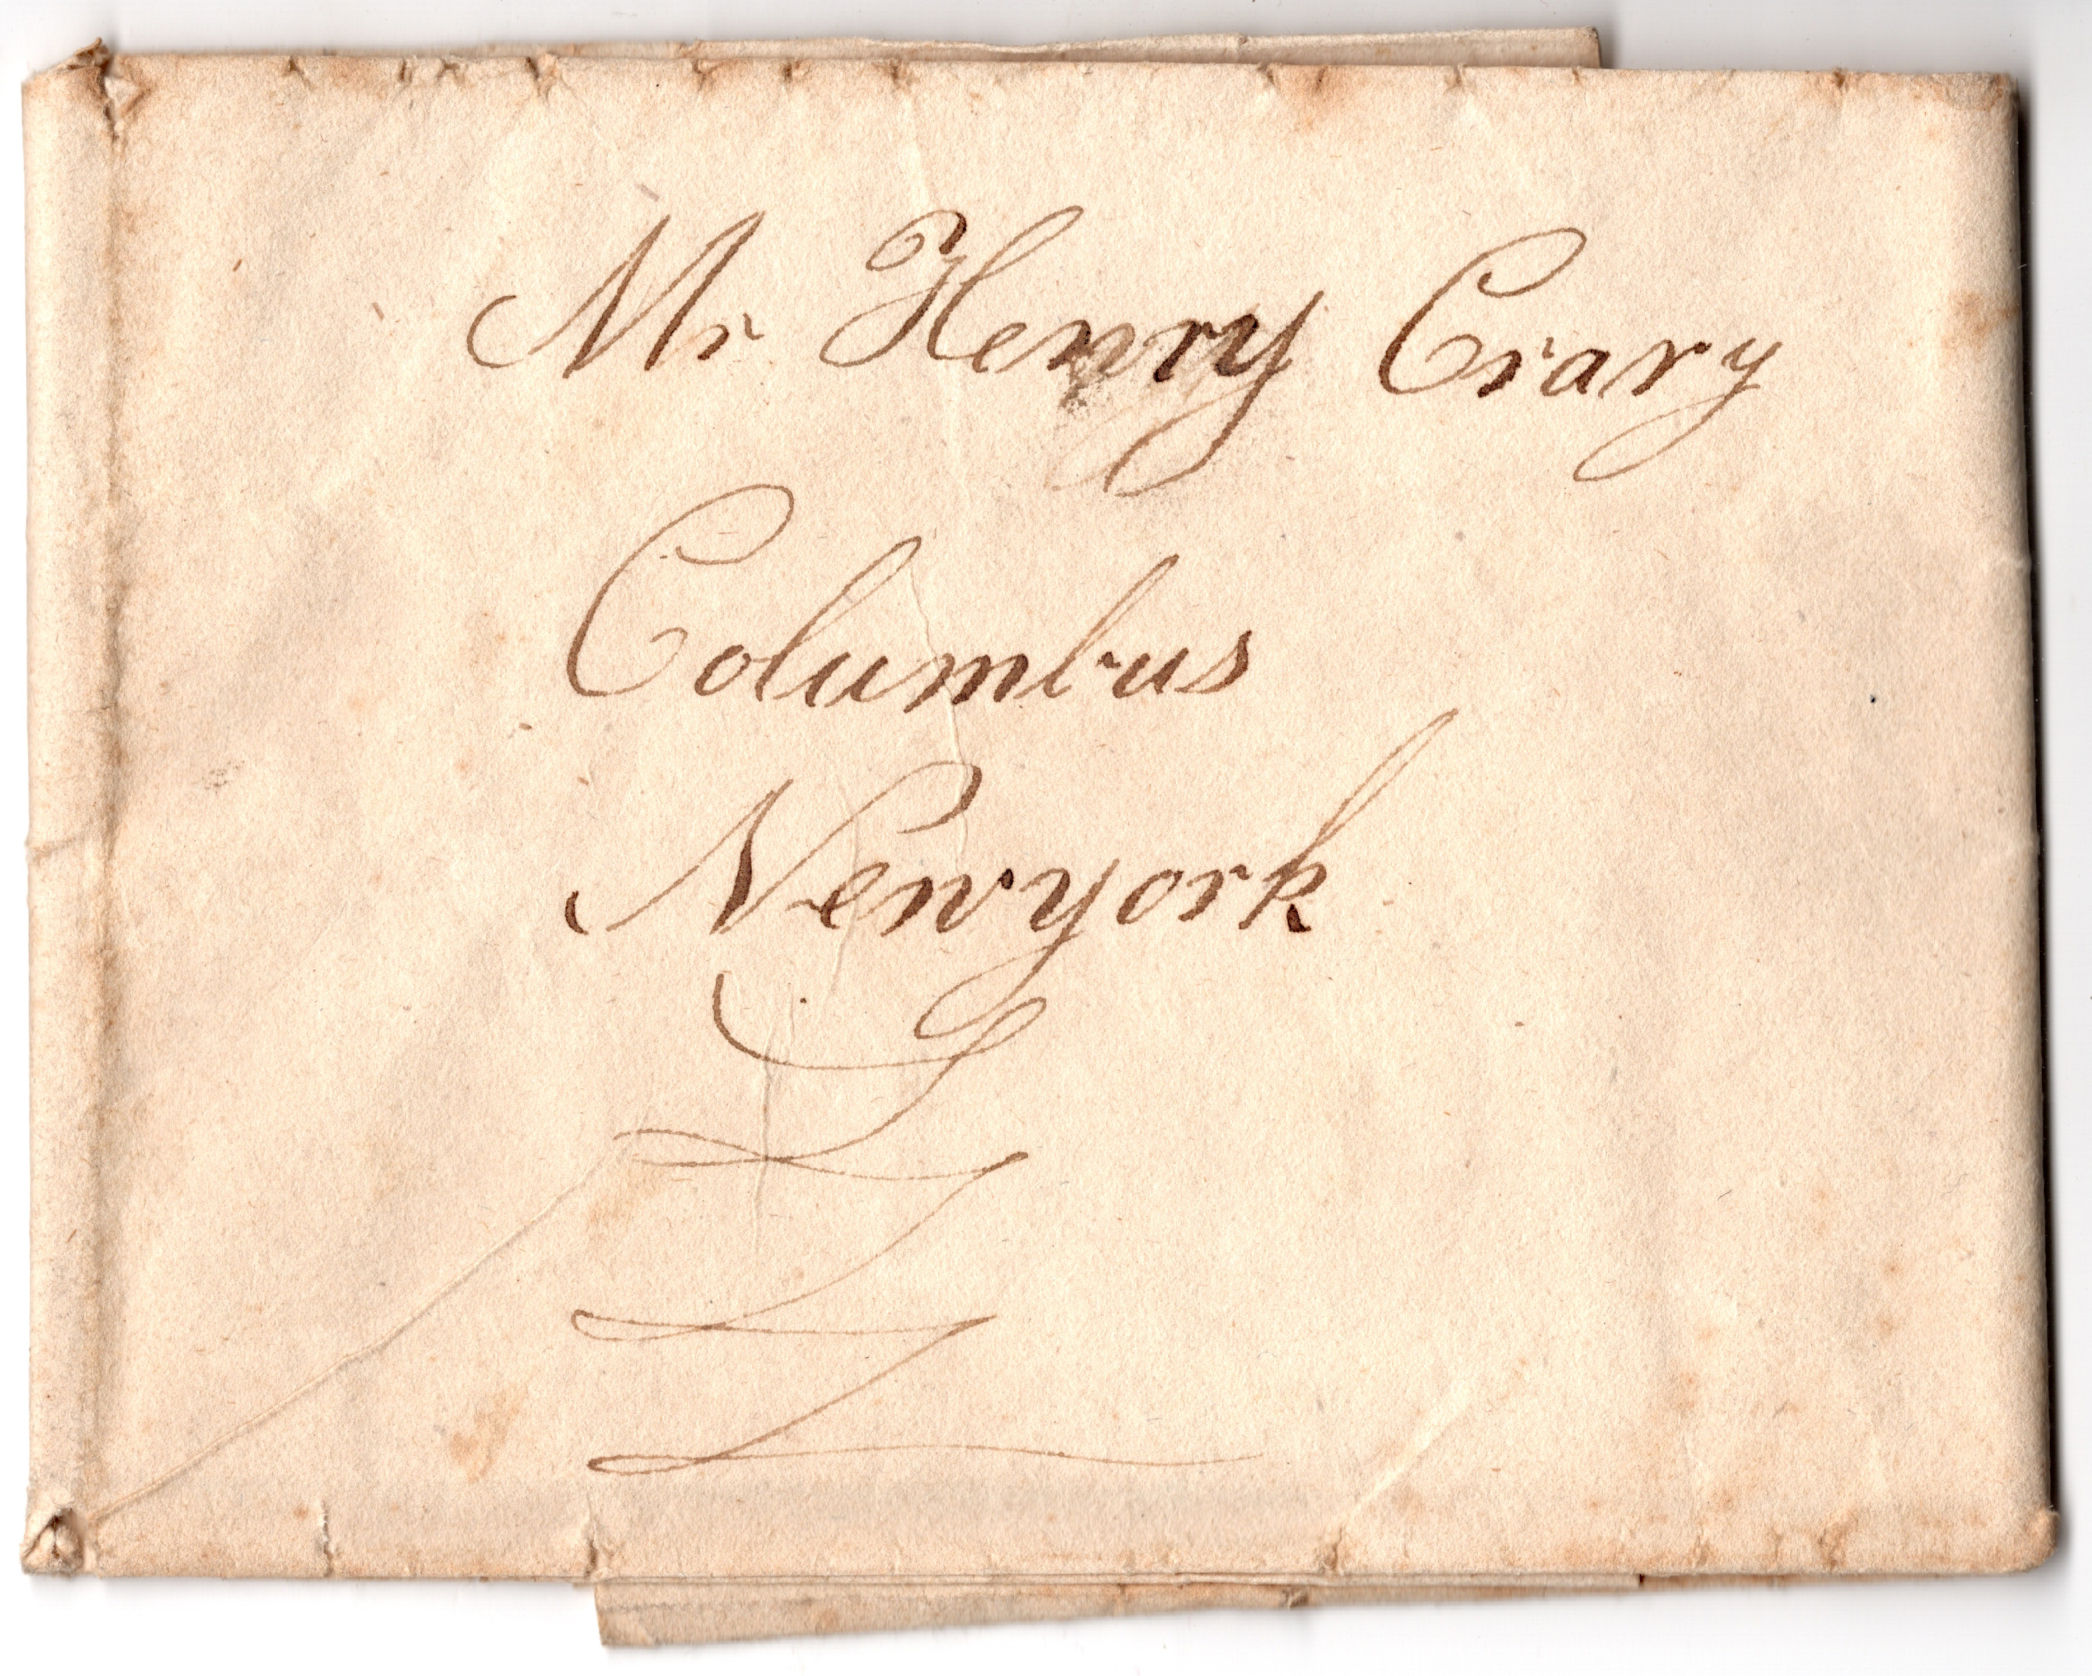 Mr Henry Crary
Columbus
Newyork